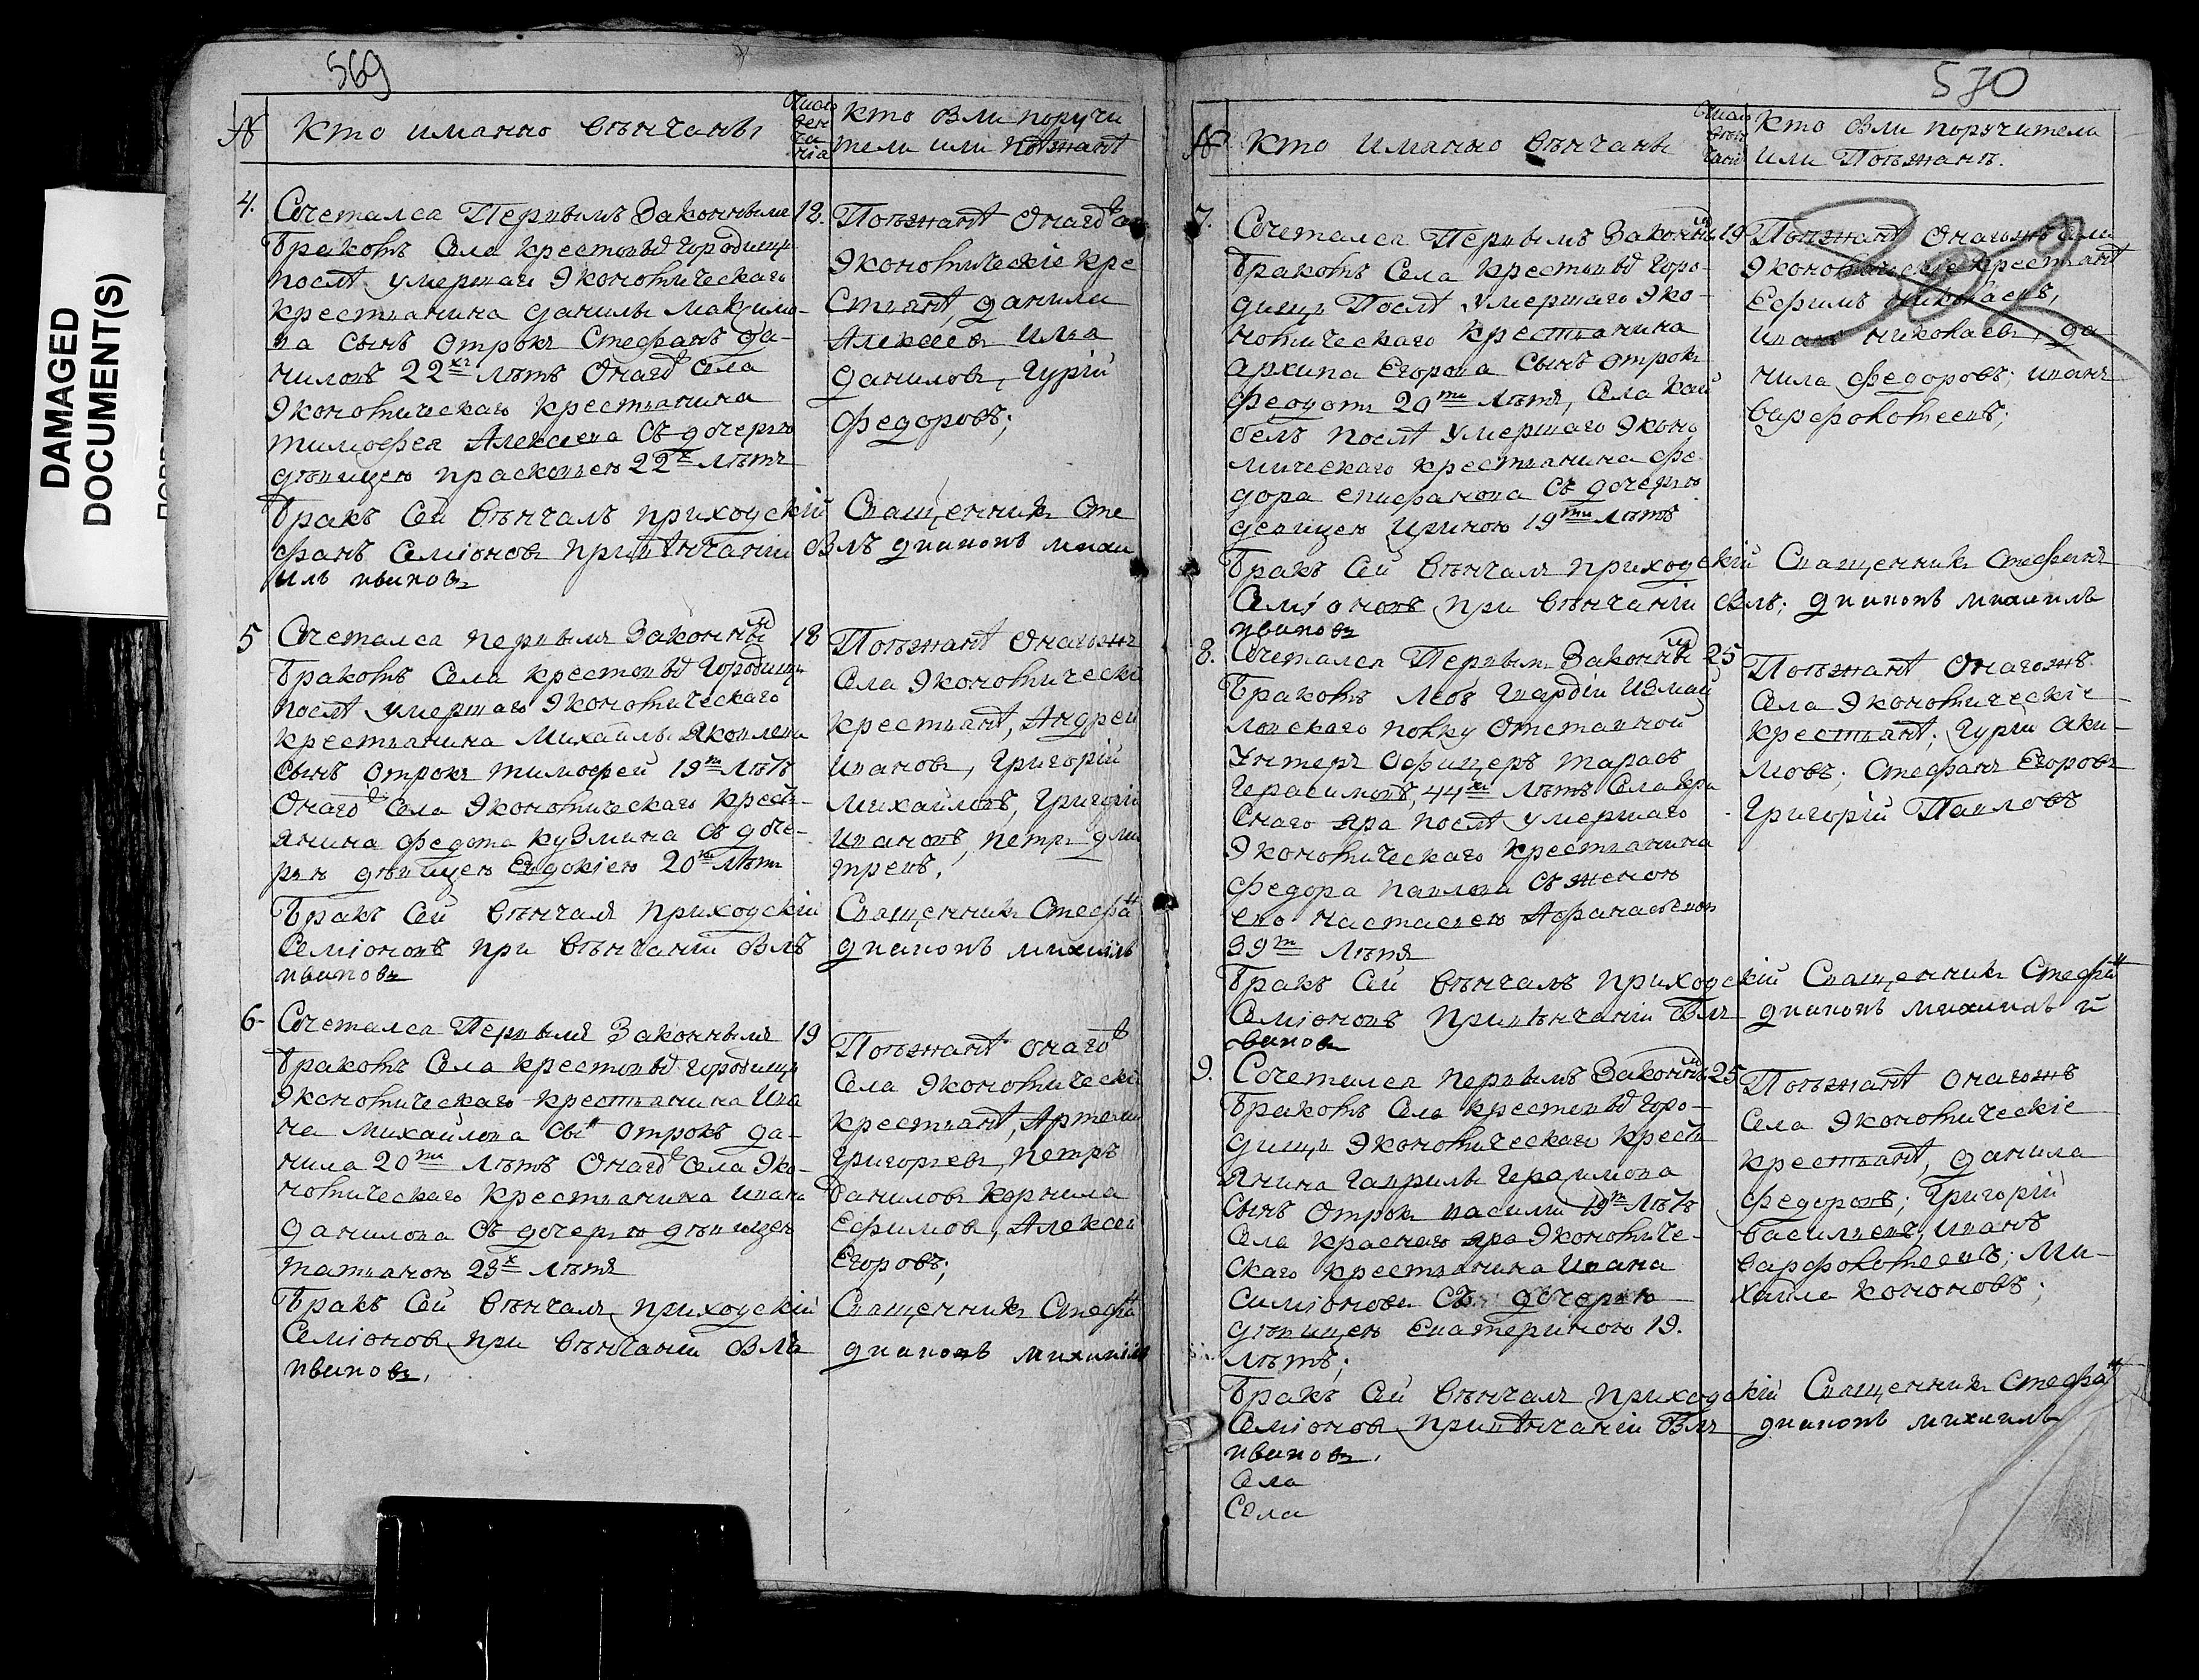 DAMAGED
DOCUMENT(S)
569
№ Кто иманно венчаны
Число вен ча ния
Кто были поручи
тели или поезжанѣ
4. Сочетался Первымъ Законнымъ 12.
бракомъ Села крестовыхъ городищъ
послѣ умершаго Экономическаго
крестьянина Данилы Максимо-
ва сынъ отрокъ Стефанъ Да-
ниловъ 22хъ лѣтъ Онаго села
Экономическаго крестьянина
тимофея Алексеева съ дочерью
дѣвицею прасковьею 22х лѣтъ
Поезжанѣ Онаго села
Экономическіе кре
стьянѣ, Данили
Алексеевъ Илья
Даниловъ, Гурій
федоровъ;
бракъ Сей Вѣнчалъ приходскій Священникъ Сте
фанъ Семіоновъ при вѣнчаніи былъ диаконъ михаи
илъ ивановъ
5 Сочетался первымъ Законнымъ 18
бракомъ Села крестовыхъ городищъ
послѣ умершаго Экономическаго
крестьянина Михайлы Яковлева
сынъ отрокъ тимофей 19ти лѣтъ
Онаго села Экономическаго кресть-
янина федота кузмина съ доче-
рью дѣвицею Евдокіею 20ти лѣтъ
Поезжанѣ Онагожъ
Села Экономическіе
крестьянѣ, Андрей
ивановъ, Григорій
михайловъ, Григорій
ивановъ, петръ дми
треевъ,
бракъ Сей Вѣнчалъ приходскій Священникъ Стефанъ
Семіоновъ при вѣнчаніи былъ диаконъ михаилъ
ивановъ
6- Сочетался Первымъ Законнымъ 19
бракомъ Села крестовыхъ городищъ
Экономическаго крестьянина Ива
на михайлова сынъ отрокъ да-
нила 20ти лѣтъ Онаго села Эко-
номическаго крестьянина ивана
данилова съ дочерью дѣвицею
татьяною 23х лѣтъ
Поезжанѣ онаго
Села Экономическіе
крестьянѣ, Артемий
Григорьевъ, петръ
даниловъ корнила
Ефимовъ, Алексей
Егоровъ;
бракъ Сей Вѣнчалъ приходскій Священникъ Стефанъ
Семіоновъ при вѣнчаніи былъ диаконъ михаилъ
ивановъ,
570
№ Кто имянно вѣнчаны
Кто были поручители
или Поезжанѣ.
7. Сочетался Первымъ Законнымъ 19
бракомъ Села крестовыхъ горо-
дищъ Послѣ умершаго Эко-
номическаго крестьянина
архипа Егорова Сынъ отрокъ
феодотъ 20ти лѣтъ, Села Кай
белъ послѣ умершаго Эконо
мическаго крестьянина фе-
дора епифанова съ дочерью
девицею ириною 19ти лѣтъ
Поезжанѣ Онагожъ села
Экономическіе крестьянѣ
Ефимъ николаевъ,
иванъ николаевъ, да
нила федоровъ; иванъ
варфоломеевъ;
бракъ Сей Вѣнчалъ приходскій Священникъ Стефанъ
Семіоновъ при вѣнчаніи былъ; диаконъ михаилъ
ивановъ
8. Сочетался Первымъ Законнымъ 25
бракомъ Лебъ гвардіи Измай
ловскаго полку отставной
Унтеръ Офицеръ тарасъ
Герасимовъ, 44хъ лѣтъ Села Кра
снаго яра послѣ умершаго
Экономическаго крестьянина
федора павлова съ женою
его настасьею Афанасьевою
39ти лѣтъ
Поезжанѣ Онагожъ
Села Экономическіе
крестьянѣ; Гурій аки-
мовъ; Стефанъ Егоровъ
Григорій Павловъ
бракъ Сей Вѣнчалъ приходскій Священникъ Стефанъ
Семіоновъ при вѣнчаніи былъ диаконъ михаилъ и
вановъ
9. Сочетался первымъ Законнымъ 25
бракомъ Села крестовыхъ горо-
дищъ Экономическаго кресть
янина гаврилы Герасимова
сынъ отрокъ василий 19ти лѣтъ
Села краснаго яра Экономиче-
скаго крестьянина Ивана
симіонова съ дочерью
дѣвицею Екатериною 19.
лѣтъ;
Поезжанѣ онагожъ
Села Экономическіе
крестьянѣ, данила
федоровъ; Григорій
васильевъ, иванъ
варфоломеевъ; Ми-
хайла кононовъ;
бракъ Сей Вѣнчалъ приходскій Священникъ Стефанъ
Семіоновъ при вѣнчаніи былъ диаконъ михаилъ
ивановъ,
Села
Села